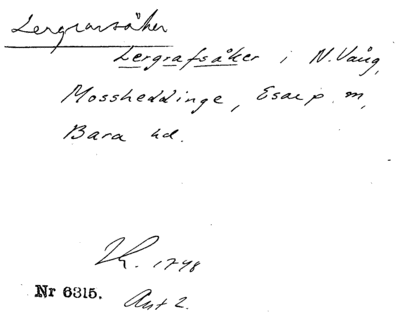 Lergravsåker
Lergrafsåker i N. Vång,
Mossheddinge, Esarp m,
Bara hd.
1748
Nr 6315. Akt 2.